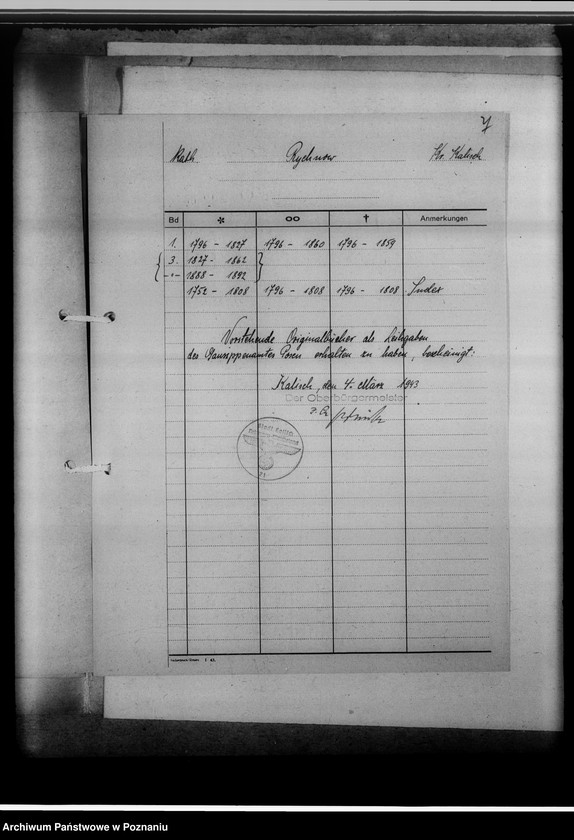 7
Kath. Rychnow Kr. Kalisch
Bd * ∞ † Anmerkungen
1. 1796 - 1827 1796 - 1860 1796 - 1859
3. 1827 - 1862
-"- 1888 - 1892
1752 - 1808 1796 - 1808 1796 - 1808 Index
Vorstehende Originalbücher als Leihgaben
des Gausippenamtes Posen erhalten zu haben, bescheinigt:
Kalisch, den 4. März 1943
Der Oberbürgermeister
Stadt Kalisch
Archiwum Państwowe w Poznaniu